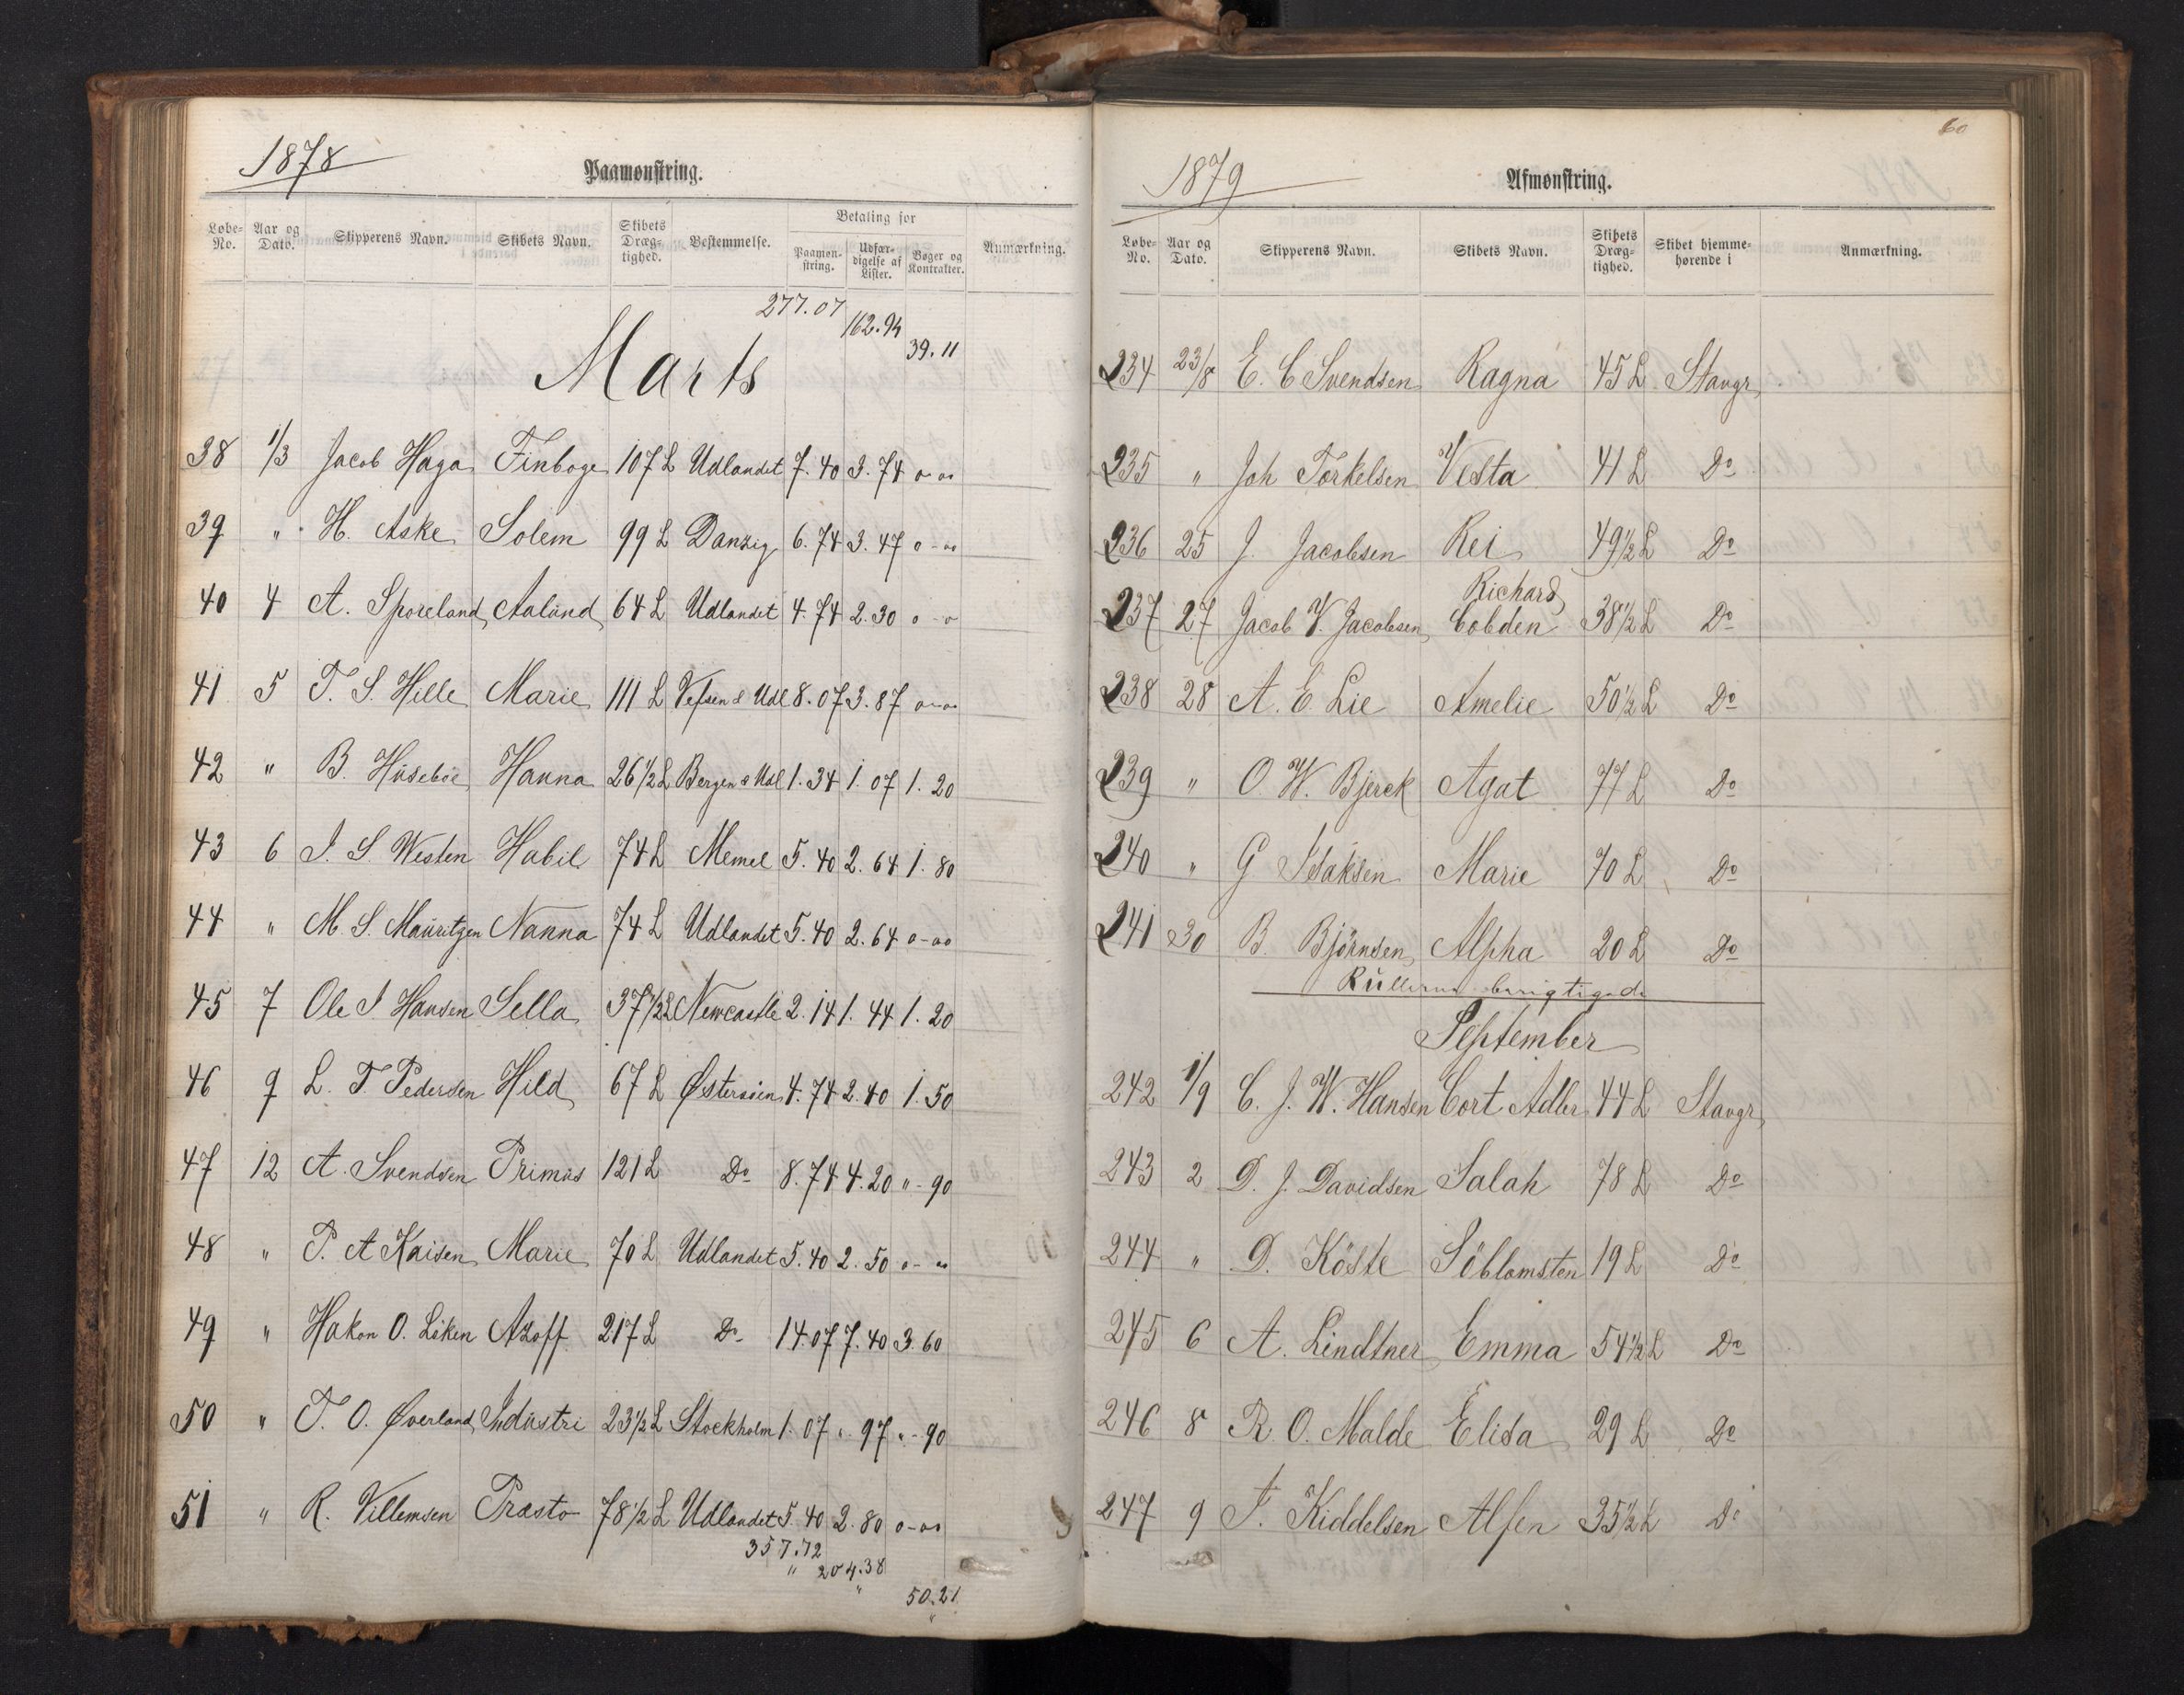 1878
Paamønstring.
Løbe-No. Aar og Dato. Skipperens Navn. Skibets Navn. Skibets Dræg-tighed. Bestemmelse. Betaling for Paamøn-string. Udfær-digelse af Lister. Bøger og Kontrakter. Anmærkning.
277.07 162.94 39.11
Marts
38 1/3 Jacob Haga Finboge 107 L Udlandet 7.40 3.74 o-oo
39 " H. Aske Solem 99 L Danzig 6.74 3.47 o-oo
40 4 A. Sporeland Aalund 64 L Udlandet 4.74 2.30 o-o
41 5 T. S. Hille Marie 111 L Vefsen & Udl 8.07 3.87 o-oo
42 " B. Húseböe Hanna 26 1/2 L Bergen & Udl 1.34 1.07 1.20
43 6 I. S Westen Habil 74 L Memel 5.40 2.64 1.80
44 " M. S. Mauritzen Nanna 74 L Udlandet 5.40 2.64 o-oo
45 7 Ole I Hansen Sella 37 1/2 L Newcastle 2.14 1.44 1.20
46 9 L. T. Pedersen Hild 67 L Østersöen 4.74 2.40 1.50
47 12 A. Svendsen Primus 121 L Do 8.74 4.20 "-90
48 " P. A Kaisen Marie 70 L Udlandet 5.40 2.50 o-oo
49 " Hakon O. Löken Azoff 217 L Do 14.07 7.40 3.60
50 " T. O. Øverland Industri 23 1/2 L Stockholm 1.07 ".97 "-90
51 " R. Villemsen Præsto 78 1/2 L Udlandet 5.40 2.80 o-oo
357.72
" 204.38
" 50.21
"
60
1879
Afmønstring.
Løbe-No. Aar og Dato. Skipperens Navn. Skibets Navn. Skibets Dræg-tighed. Skibet hjemme-hørende i Anmærkning.
234 23/8 E. C Svendsen Ragna 45 L Stavgr
235 " Joh Torkelsen Vesta 41 L Do
236 25 J. Jacobsen Rei 49 1/2 L Do
237 27 Jacob V. Jacobsen Richard Cobden 38 1/2 L Do
238 28 A. E. Lie Amelie 50 1/2 L Do
239 " O. W. Bjerck Agat 77 L Do
240 " G Isaksen Marie 70 L Do
241 30 B. Björnsen Alpha 20 L Do
Rullerne berigtigede
September
242 1/9 C. J. W. Hansen Cort Adler 44 L Stavgr
243 2 D. J. Davidsen Salah 78 L Do
244 " D. Köste Söblomsten 19 L Do
245 6 A. Lindtner Emma 54 1/2 L Do
246 8 R. O. Malde Elisa 29 L Do
247 9 T. Kiddelsen Alfen 35 1/2 L Do